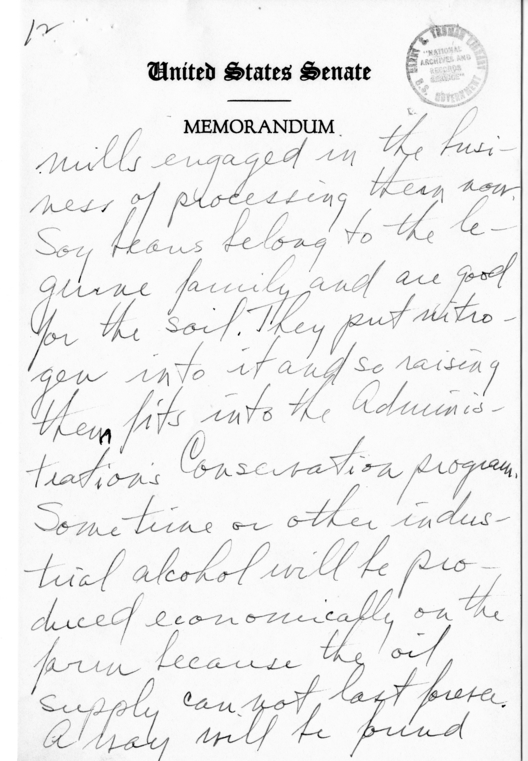 12
HARRY S. TRUMAN LIBRARY
"NATIONAL
ARCHIVES AND
RECORDS
SERVICE"
U.S. GOVERNMENT
United States Senate
MEMORANDUM
mills engaged in the busi-
ness of processing them now.
Soy beans belong to the le-
gume family and are good
for the soil. They put nitro-
gen into it and so raising
them fits into the Adminis-
tration's Conservation program.
Sometime or other indus-
trial alcohol will be pro-
duced economically on the
farm because the oil
supply can not last forever.
A way will be found